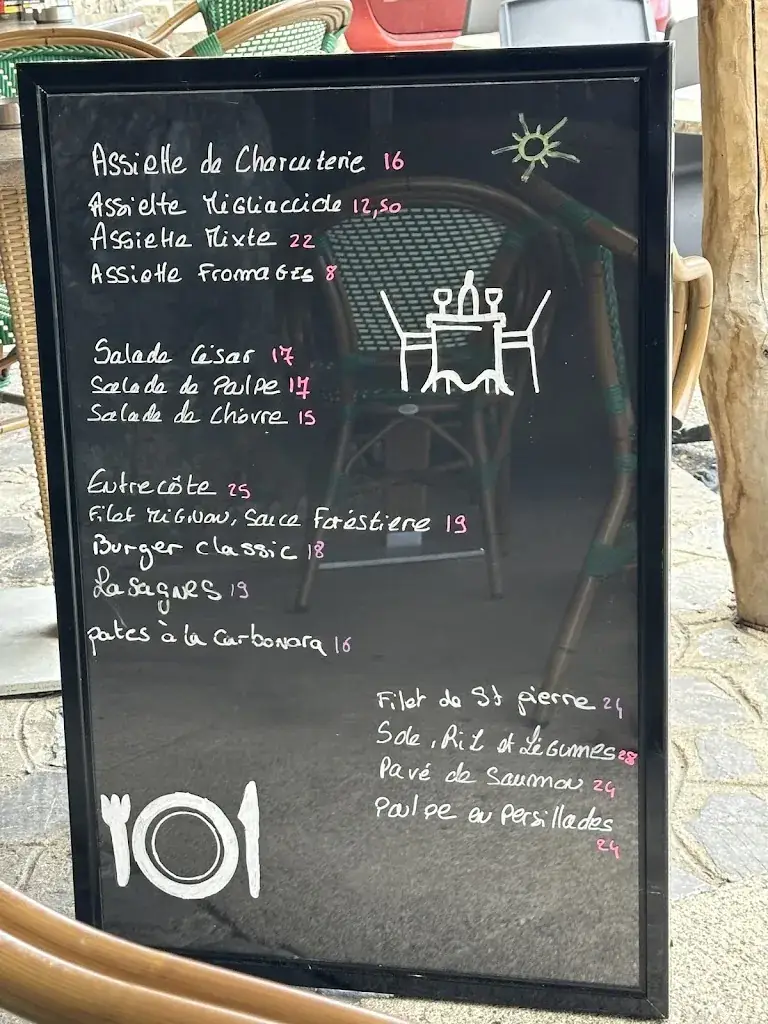 Assiette de Charcuterie 16
Assiette Migliaccide 12,50
Assiette Mixte 22
Assiette FromaGEs 8
Salade César 17
Salade de Poulpe 17
Salade de Chèvre 15
Entrecôte 25
Filet MiGNoN, Sauce Foréstiere 19
Burger classic 18
LasagNES 19
pates à la CarboNara 16
Filet de St pierre 24
Sole, Riz et LéGumes 28
Pavé de Saumon 24
Poulpe en Persillades
24